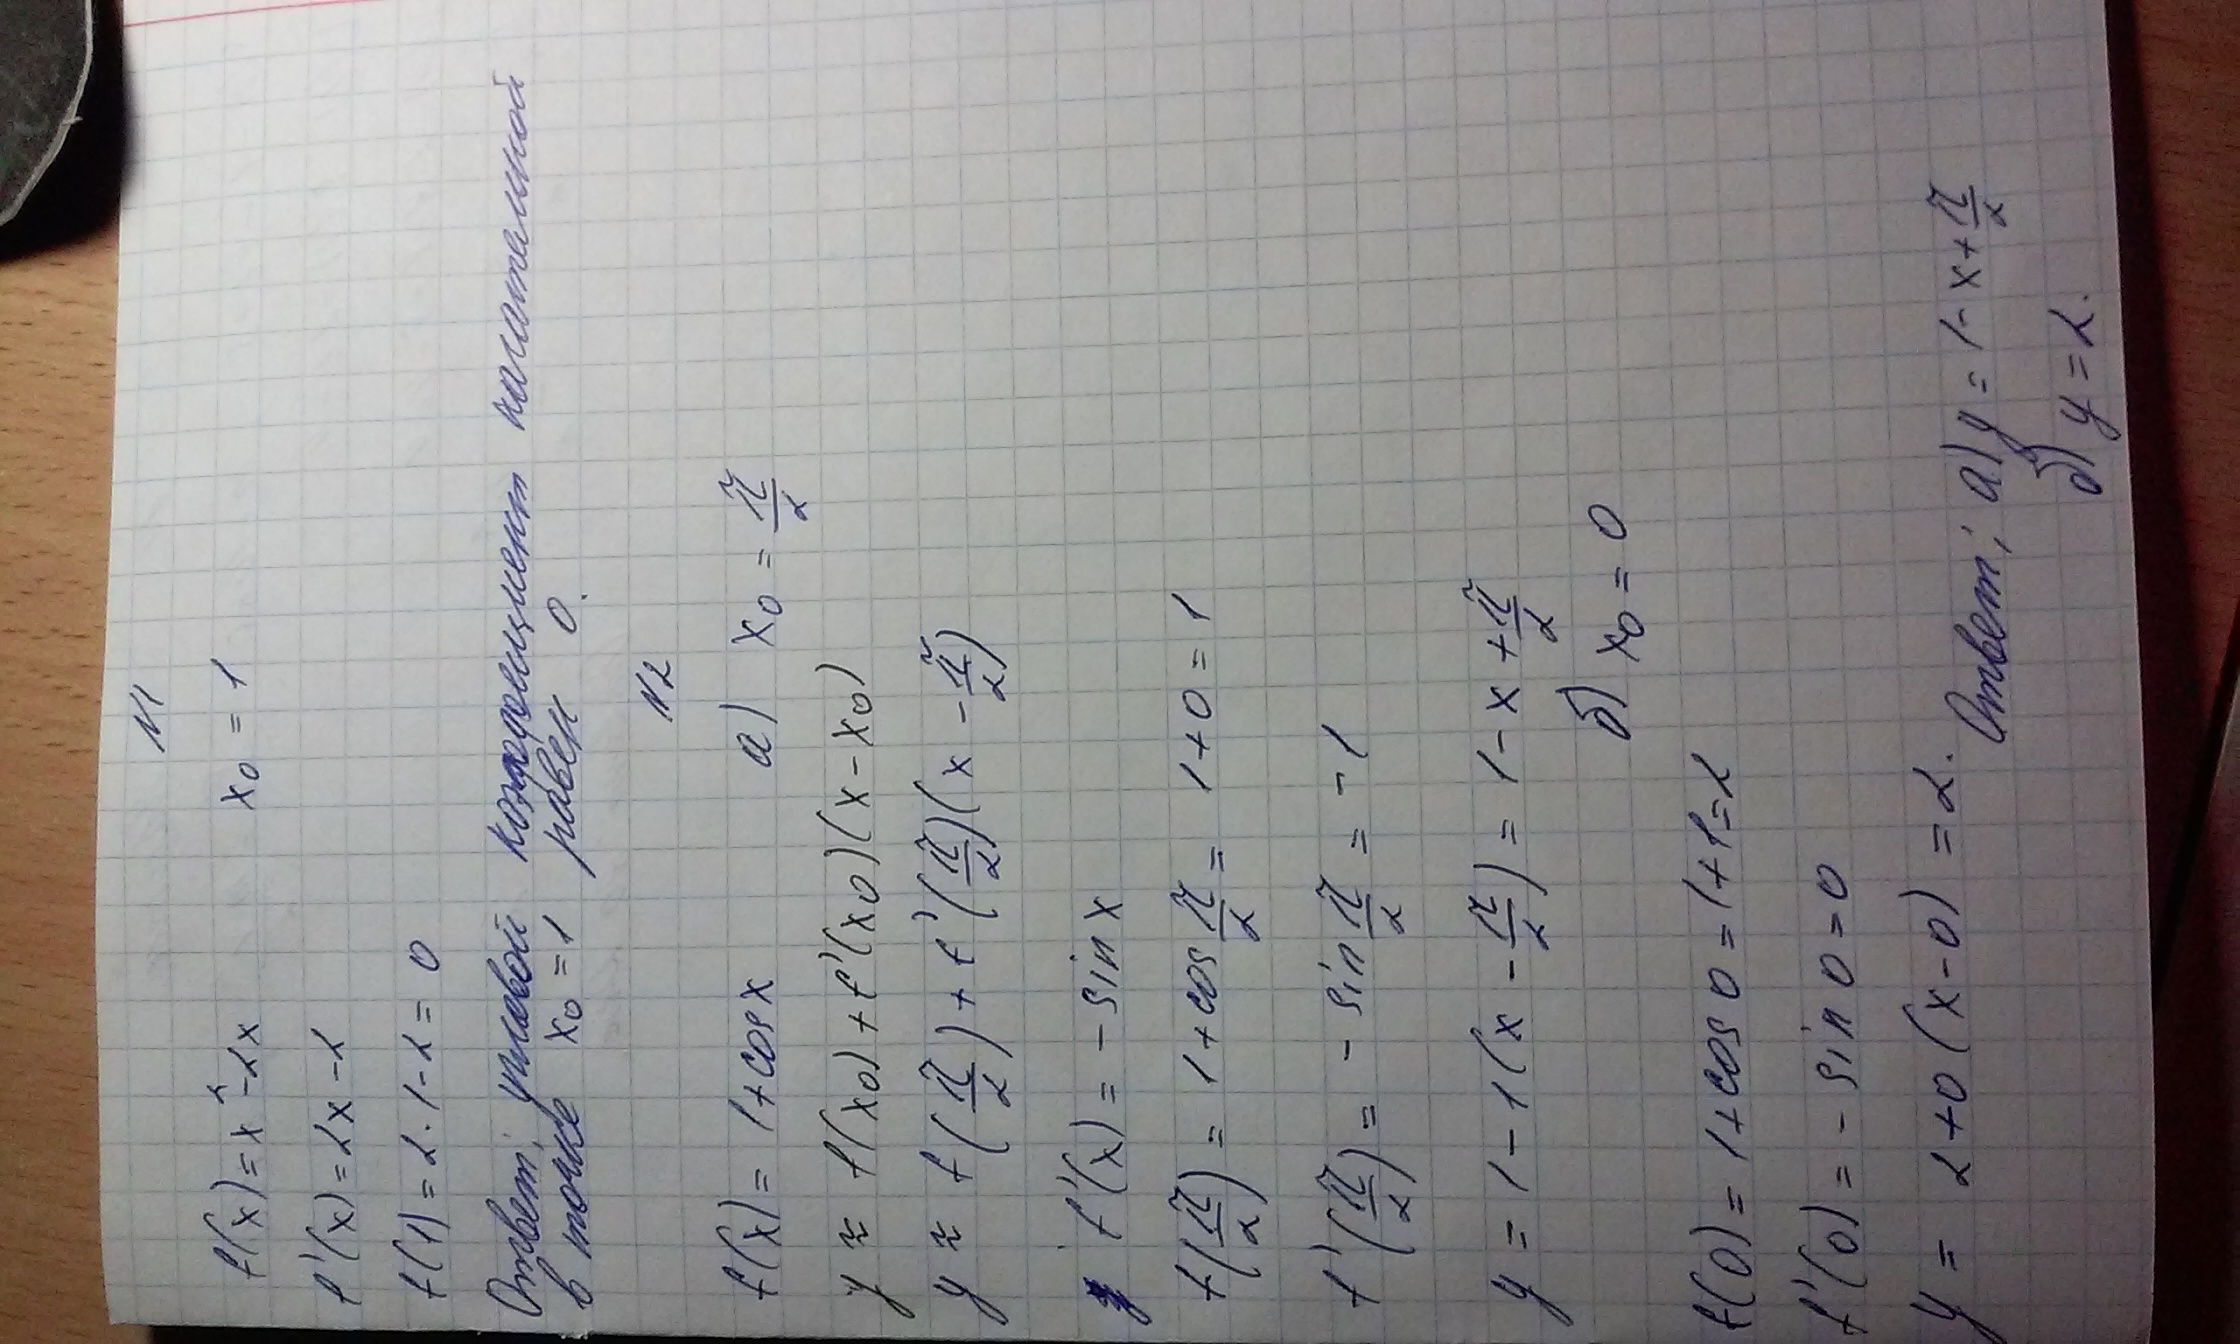 N1
f(x) = x² - 2x    x₀ = 1
f'(x) = 2x - 2
f(1) = 2 · 1 - 2 = 0
Ответ: угловой коэффициент касательной
в точке x₀ = 1 равен 0.
N2
f(x) = 1 + cos x    а) x₀ = π/2
y = f(x₀) + f'(x₀)(x - x₀)
y = f(π/2) + f'(π/2)(x - π/2)
f'(x) = - sin x
f(π/2) = 1 + cos π/2 = 1 + 0 = 1
f'(π/2) = - sin π/2 = - 1
y = 1 - 1(x - π/2) = 1 - x + π/2
б) x₀ = 0
f(0) = 1 + cos 0 = 1 + 1 = 2
f'(0) = - sin 0 = 0
y = 2 + 0(x - 0) = 2.
Ответ: а) y = 1 - x + π/2
б) y = 2.